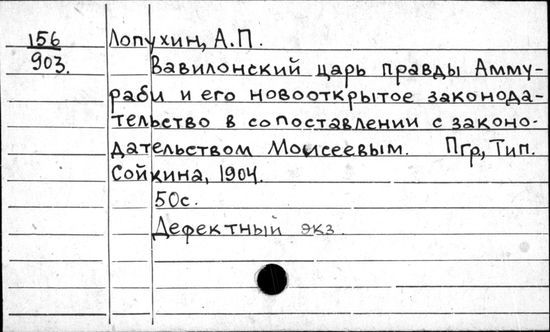 156 Лопухин, А.П.
903. Вавилонский царь правды Амму-
раби и его новооткрытое законода-
тельство в сопоставлении с законо-
дательством Моисеевым. Пгр, Тип.
Сойкина, 1904.
50с.
Дефектный экз.